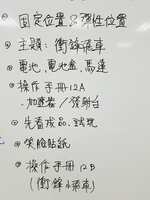 固定位置&彈性位置
主題：衝鋒飛車
電池，電池盒，馬達
操作手冊12A
加速器／發射台
先看成品、試玩
笑臉貼紙
操作手冊12B
(衝鋒飛車)